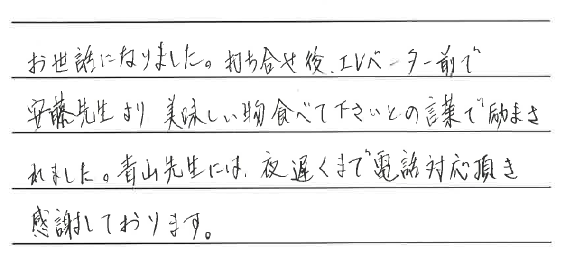 お世話になりました。打ち合せ後、エレベーター前で
安藤先生より 美味しい物食べて下さいとの言葉で励まさ
れました。青山先生には、夜遅くまで電話対応頂き
感謝しております。